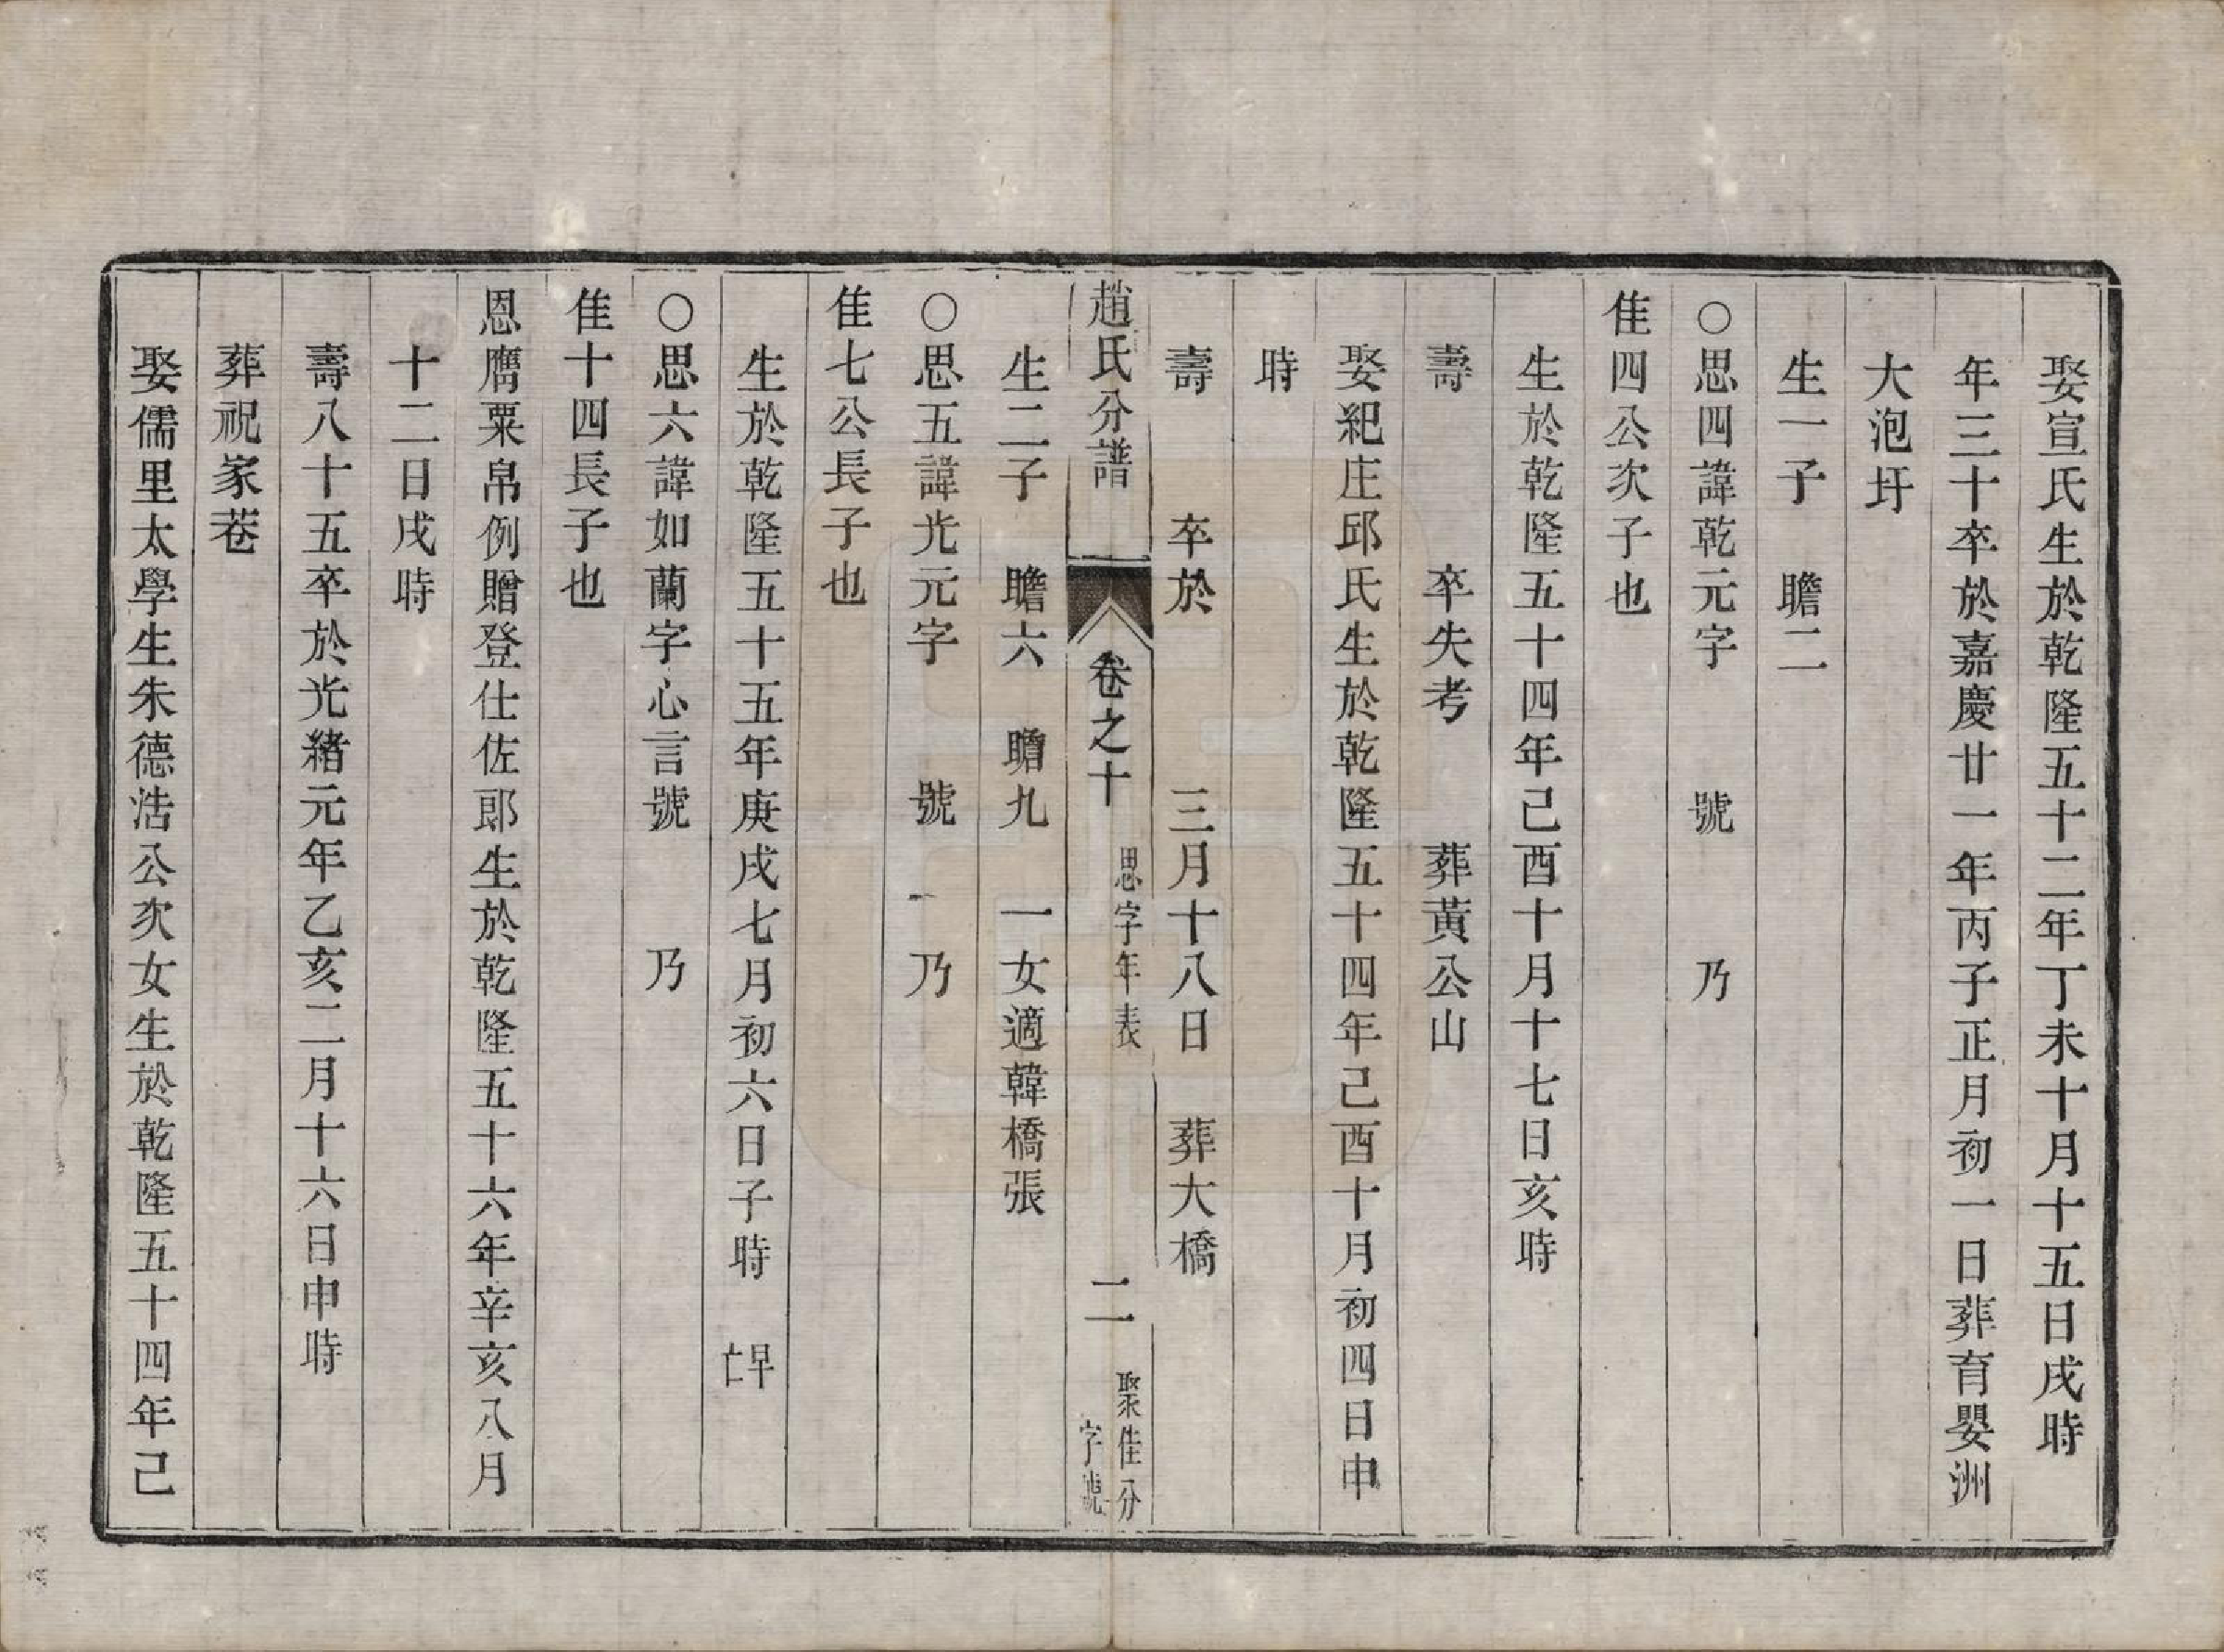 娶宣氏生於乾隆五十二年丁未十月十五日戌時
年三十卒於嘉慶廿一年丙子正月初一日葬育嬰洲
大泡圩
生一子　瞻二
○思四諱乾元字　　號　　乃
佳四公次子也
生於乾隆五十四年己酉十月十七日亥時
壽　　　卒失考　　葬黃公山
娶紀庄邱氏生於乾隆五十四年己酉十月初四日申
時
壽　　卒於　　　三月十八日　葬大橋
趙氏分譜　卷之十　思字年表　二　聚佳分字號
生二子　瞻六　瞻九　一女適韓橋張
○思五諱光元字　　號　　乃
佳七公長子也
生於乾隆五十五年庚戌七月初六日子時　早亡
○思六諱如蘭字心言號　　乃
佳十四長子也
恩膺粟帛例贈登仕佐郎生於乾隆五十六年辛亥八月
十二日戌時
壽八十五卒於光緒元年乙亥二月十六日申時
葬祝家巷
娶儒里太學生朱德浩公次女生於乾隆五十四年己